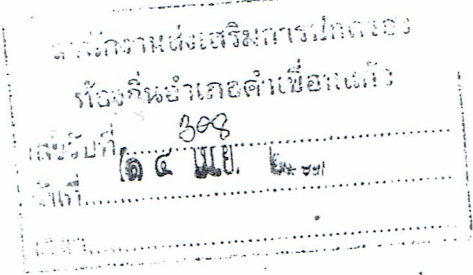 สำนักงานส่งเสริมการปกครอง
ท้องถิ่นอำเภอคำเขื่อนแก้ว
เลขรับที่ 308
วันที่ ๑๔ เม.ย.
เวลา